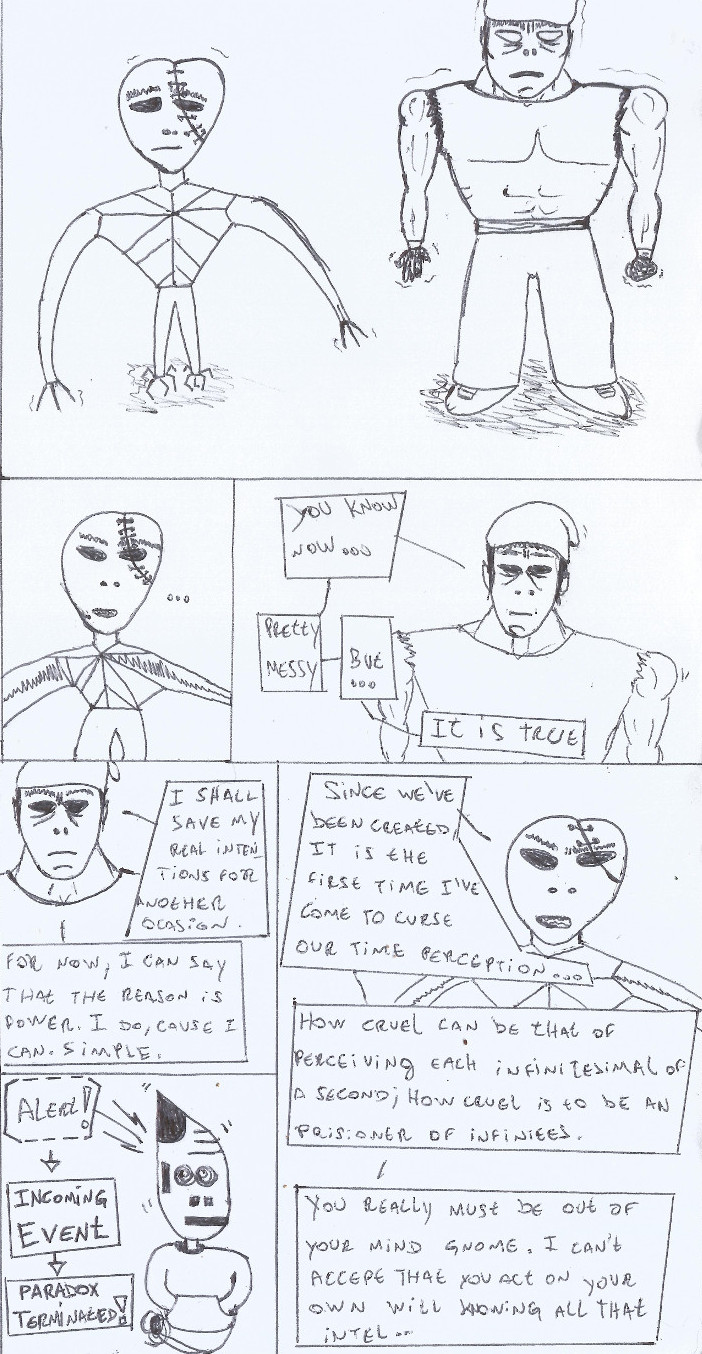 YOU KNOW
NOW...
PRETTY
MESSY
BUT
...
IT IS TRUE
...
I SHALL
SAVE MY
REAL INTEN
TIONS FOR
ANOTHER
OCASION.
FOR NOW, I CAN SAY
THAT THE REASON IS
POWER. I DO, CAUSE I
CAN. SIMPLE.
SINCE WE'VE
BEEN CREATED,
IT IS THE
FIRST TIME I'VE
COME TO CURSE
OUR TIME PERCEPTION...
HOW CRUEL CAN BE THAT OF
PERCEIVING EACH INFINITESIMAL OF
A SECOND; HOW CRUEL IS TO BE AN
PRISIONER OF INFINITIES.
YOU REALLY MUST BE OUT OF
YOUR MIND GNOME. I CAN'T
ACCEPT THAT YOU ACT ON YOUR
OWN WILL KNOWING ALL THAT
INTEL...
ALERT!
INCOMING
EVENT
PARADOX
TERMINATED!